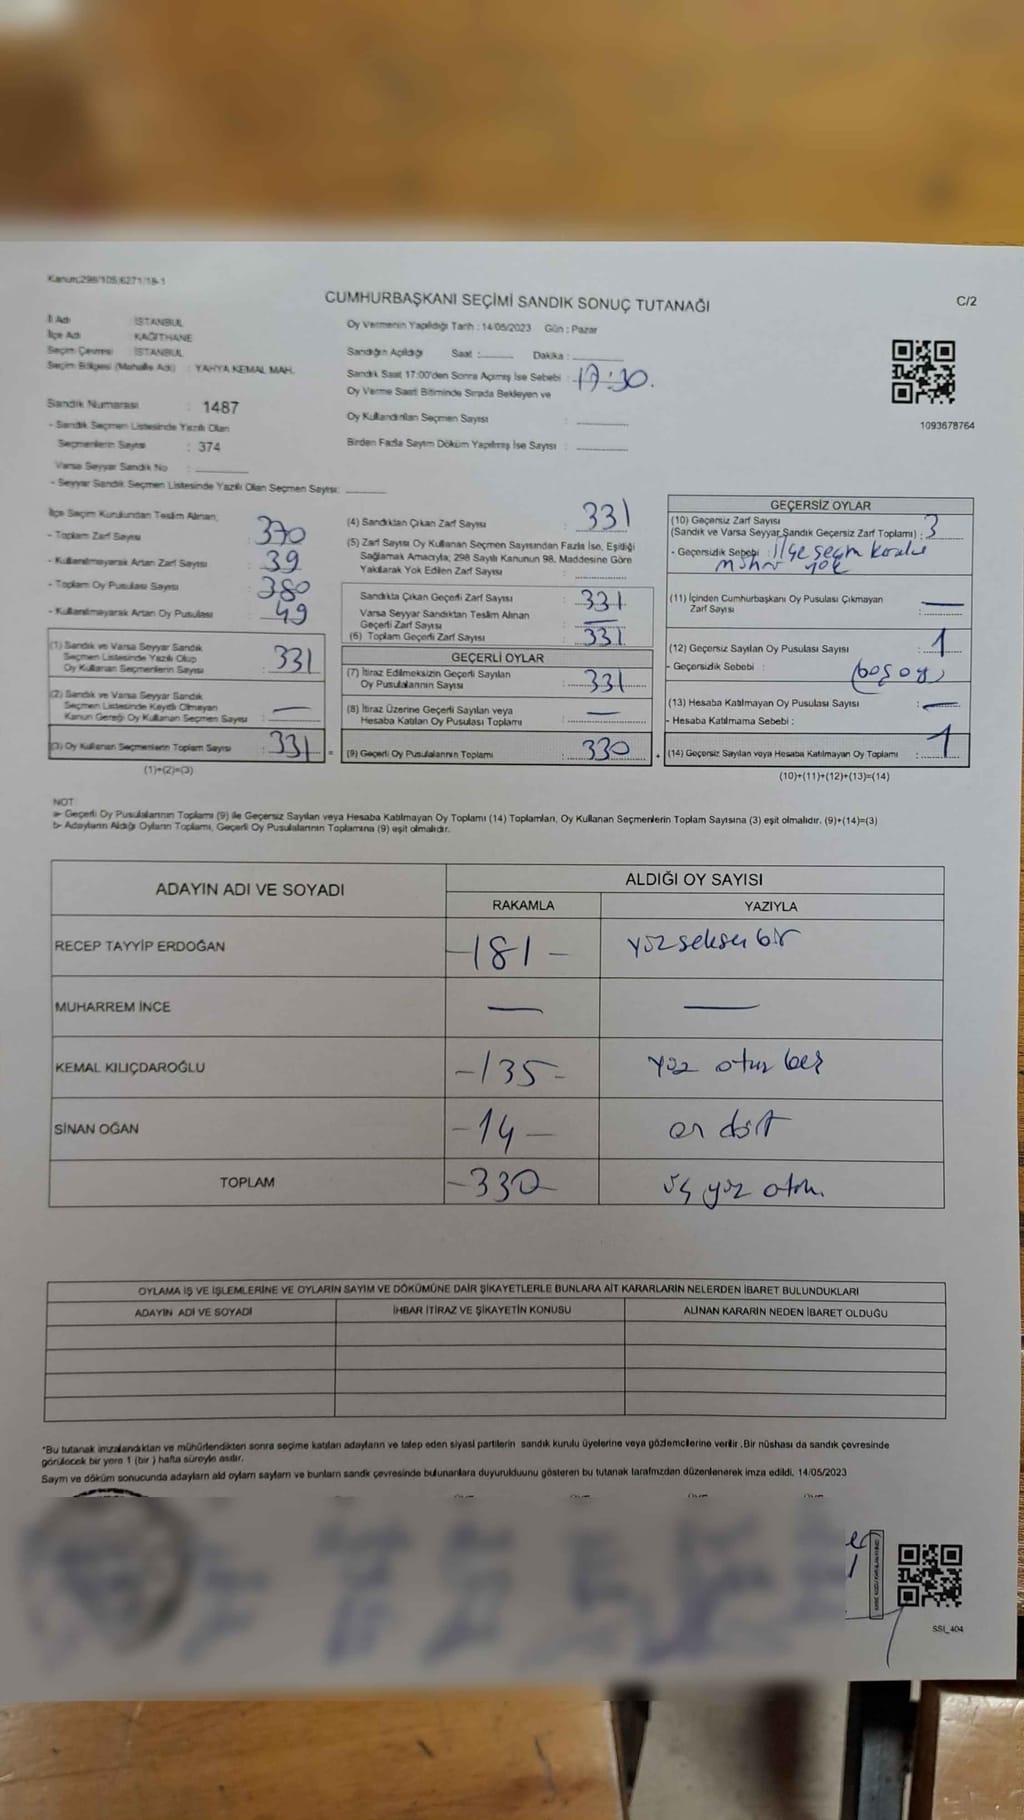 Kanun;298/105;6271/18-1
CUMHURBAŞKANI SEÇİMİ SANDIK SONUÇ TUTANAĞI
C/2
İl Adı : İSTANBUL
İlçe Adı : KAĞITHANE
Seçim Çevresi : İSTANBUL
Seçim Bölgesi (Mahalle Adı) : YAHYA KEMAL MAH.
Sandık Numarası : 1487
- Sandık Seçmen Listesinde Yazılı Olan
Seçmenlerin Sayısı : 374
Varsa Seyyar Sandık No :
- Seyyar Sandık Seçmen Listesinde Yazılı Olan Seçmen Sayısı:
Oy Vermenin Yapıldığı Tarih : 14/05/2023 Gün : Pazar
Sandığın Açıldığı Saat : Dakika :
Sandık Saat 17:00'den Sonra Açılmış İse Sebebi : 17:30.
Oy Verme Saati Bitiminde Sırada Bekleyen ve
Oy Kullandırılan Seçmen Sayısı :
Birden Fazla Sayım Döküm Yapılmış İse Sayısı :
1093678764
İlçe Seçim Kurulundan Teslim Alınan;
- Toplam Zarf Sayısı : 370
- Kullanılmayarak Artan Zarf Sayısı : 39
- Toplam Oy Pusulası Sayısı : 380
- Kullanılmayarak Artan Oy Pusulası : 49
(1) Sandık ve Varsa Seyyar Sandık
Seçmen Listesinde Yazılı Olup
Oy Kullanan Seçmenlerin Sayısı : 331
(2) Sandık ve Varsa Seyyar Sandık
Seçmen Listesinde Kayıtlı Olmayan
Kanun Gereği Oy Kullanan Seçmen Sayısı : —
(3) Oy Kullanan Seçmenlerin Toplam Sayısı : 331 =
(1)+(2)=(3)
(4) Sandıktan Çıkan Zarf Sayısı : 331
(5) Zarf Sayısı Oy Kullanan Seçmen Sayısından Fazla İse, Eşitliği
Sağlamak Amacıyla, 298 Sayılı Kanunun 98. Maddesine Göre
Yakılarak Yok Edilen Zarf Sayısı :
Sandıkta Çıkan Geçerli Zarf Sayısı : 331
Varsa Seyyar Sandıktan Teslim Alınan
Geçerli Zarf Sayısı : —
(6) Toplam Geçerli Zarf Sayısı : 331
GEÇERLİ OYLAR
(7) İtiraz Edilmeksizin Geçerli Sayılan
Oy Pusulalarının Sayısı : 331
(8) İtiraz Üzerine Geçerli Sayılan veya
Hesaba Katılan Oy Pusulası Toplamı : —
(9) Geçerli Oy Pusulalarının Toplamı : 330 +
GEÇERSİZ OYLAR
(10) Geçersiz Zarf Sayısı
(Sandık ve Varsa Seyyar Sandık Geçersiz Zarf Toplamı) : 3
- Geçersizlik Sebebi : İlçe seçim kurulu
mührü yok
(11) İçinden Cumhurbaşkanı Oy Pusulası Çıkmayan
Zarf Sayısı : —
(12) Geçersiz Sayılan Oy Pusulası Sayısı : 1
- Geçersizlik Sebebi : (boş oy)
(13) Hesaba Katılmayan Oy Pusulası Sayısı : —
- Hesaba Katılmama Sebebi :
(14) Geçersiz Sayılan veya Hesaba Katılmayan Oy Toplamı : 1
(10)+(11)+(12)+(13)=(14)
NOT
a- Geçerli Oy Pusulalarının Toplamı (9) ile Geçersiz Sayılan veya Hesaba Katılmayan Oy Toplamı (14) Toplamları, Oy Kullanan Seçmenlerin Toplam Sayısına (3) eşit olmalıdır. (9)+(14)=(3)
b- Adayların Aldığı Oyların Toplamı, Geçerli Oy Pusulalarının Toplamına (9) eşit olmalıdır.
ADAYIN ADI VE SOYADI ALDIĞI OY SAYISI
RAKAMLA YAZIYLA
RECEP TAYYİP ERDOĞAN -181- yüzseksen bir
MUHARREM İNCE — —
KEMAL KILIÇDAROĞLU -135- yüz otuz beş
SİNAN OĞAN -14- on dört
TOPLAM -330- üç yüz otuz.
OYLAMA İŞ VE İŞLEMLERİNE VE OYLARIN SAYIM VE DÖKÜMÜNE DAİR ŞİKAYETLERLE BUNLARA AİT KARARLARIN NELERDEN İBARET BULUNDUKLARI
ADAYIN ADI VE SOYADI İHBAR İTİRAZ VE ŞİKAYETİN KONUSU ALINAN KARARIN NEDEN İBARET OLDUĞU
*Bu tutanak imzalandıktan ve mühürlendikten sonra seçime katılan adayların ve talep eden siyasi partilerin sandık kurulu üyelerine veya gözlemcilerine verilir.Bir nüshası da sandık çevresinde
görülecek bir yere 1 (bir ) hafta süreyle asılır.
Sayım ve döküm sonucunda adayların ald oyların sayların ve bunların sandk çevresinde bulunanlara duyurulduunu gösteren bu tutanak tarafmzdan düzenlenerek imza edildi. 14/05/2023
SSI_404